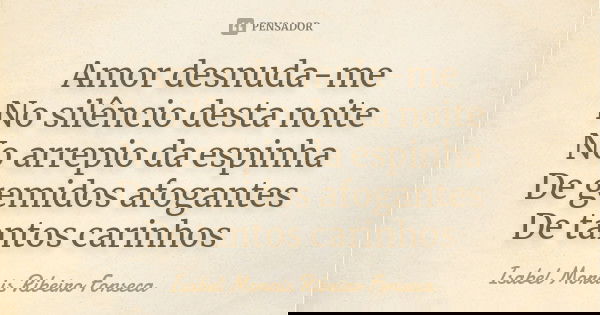 PENSADOR
Amor desnuda-me
No silêncio desta noite
No arrepio da espinha
De gemidos afogantes
De tantos carinhos
Isabel Morais Ribeiro Fonseca